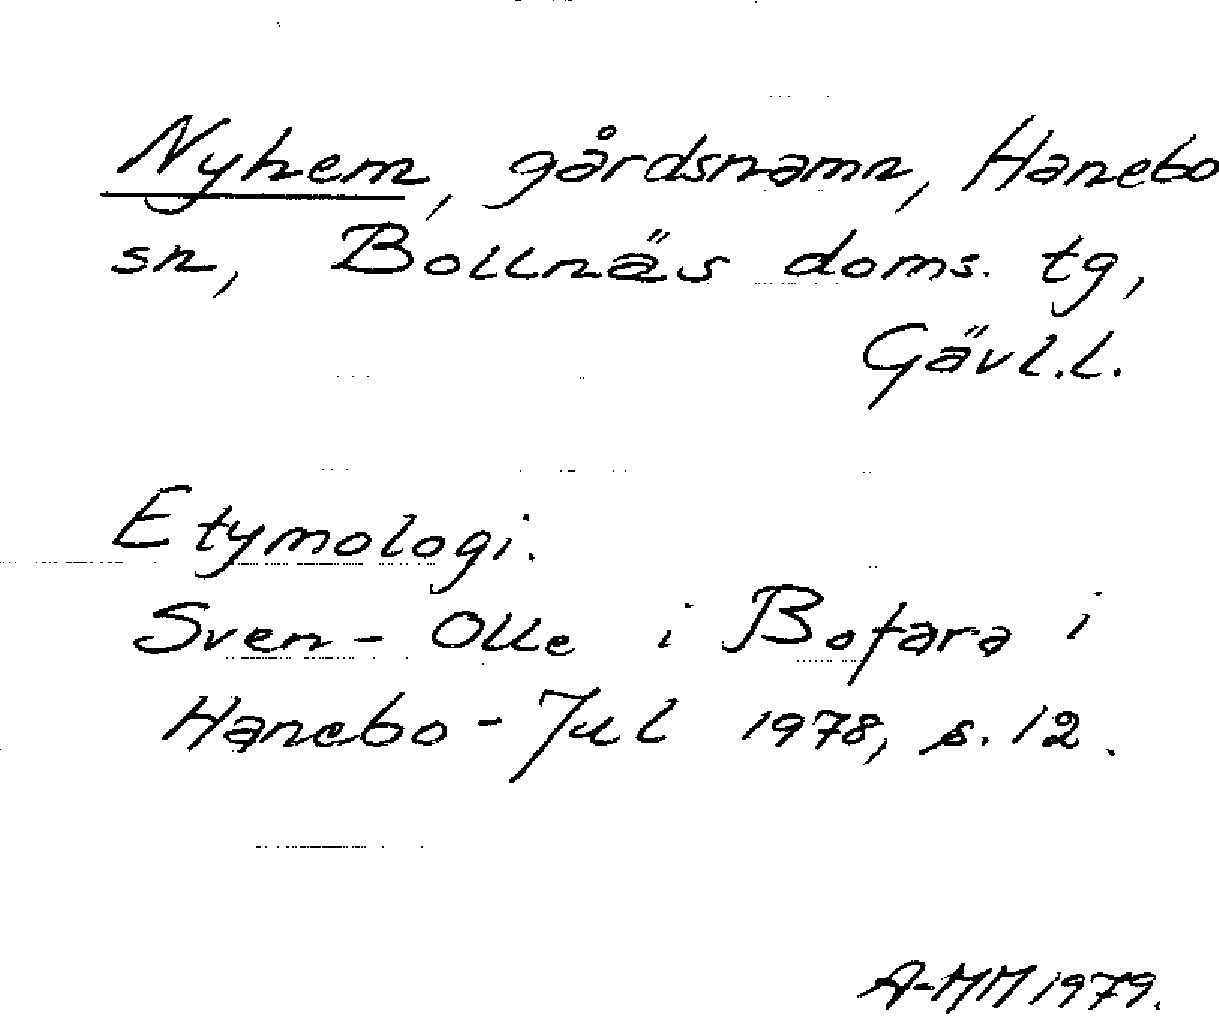 Nyhem, gårdsnamn, Hanebo
sn, Bollnäs doms. tg,
Gävl.l.
Etymologi.
Sven-Olle i Bofara i
Hanebo-Jul 1978, s. 12.
A-MM 1979.